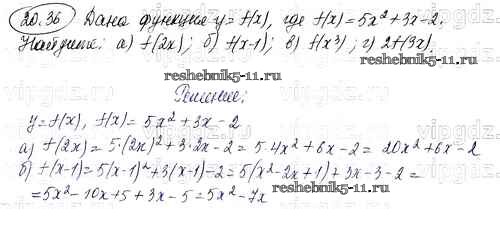 20.36 Дана функция y = f(x), где f(x) = 5x² + 3x - 2.
Найдите: а) f(2x); б) f(x-1); в) f(x³); г) 2f(3x).
reshebnik5-11.ru
reshebnik5-11.ru
Решение:
y = f(x), f(x) = 5x² + 3x - 2
а) f(2x) = 5·(2x)² + 3·2x - 2 = 5·4x² + 6x - 2 = 20x² + 6x - 2
б) f(x-1) = 5(x-1)² + 3(x-1) - 2 = 5(x² - 2x + 1) + 3x - 3 - 2 =
= 5x² - 10x + 5 + 3x - 5 = 5x² - 7x
reshebnik5-11.ru
vipgdz.com